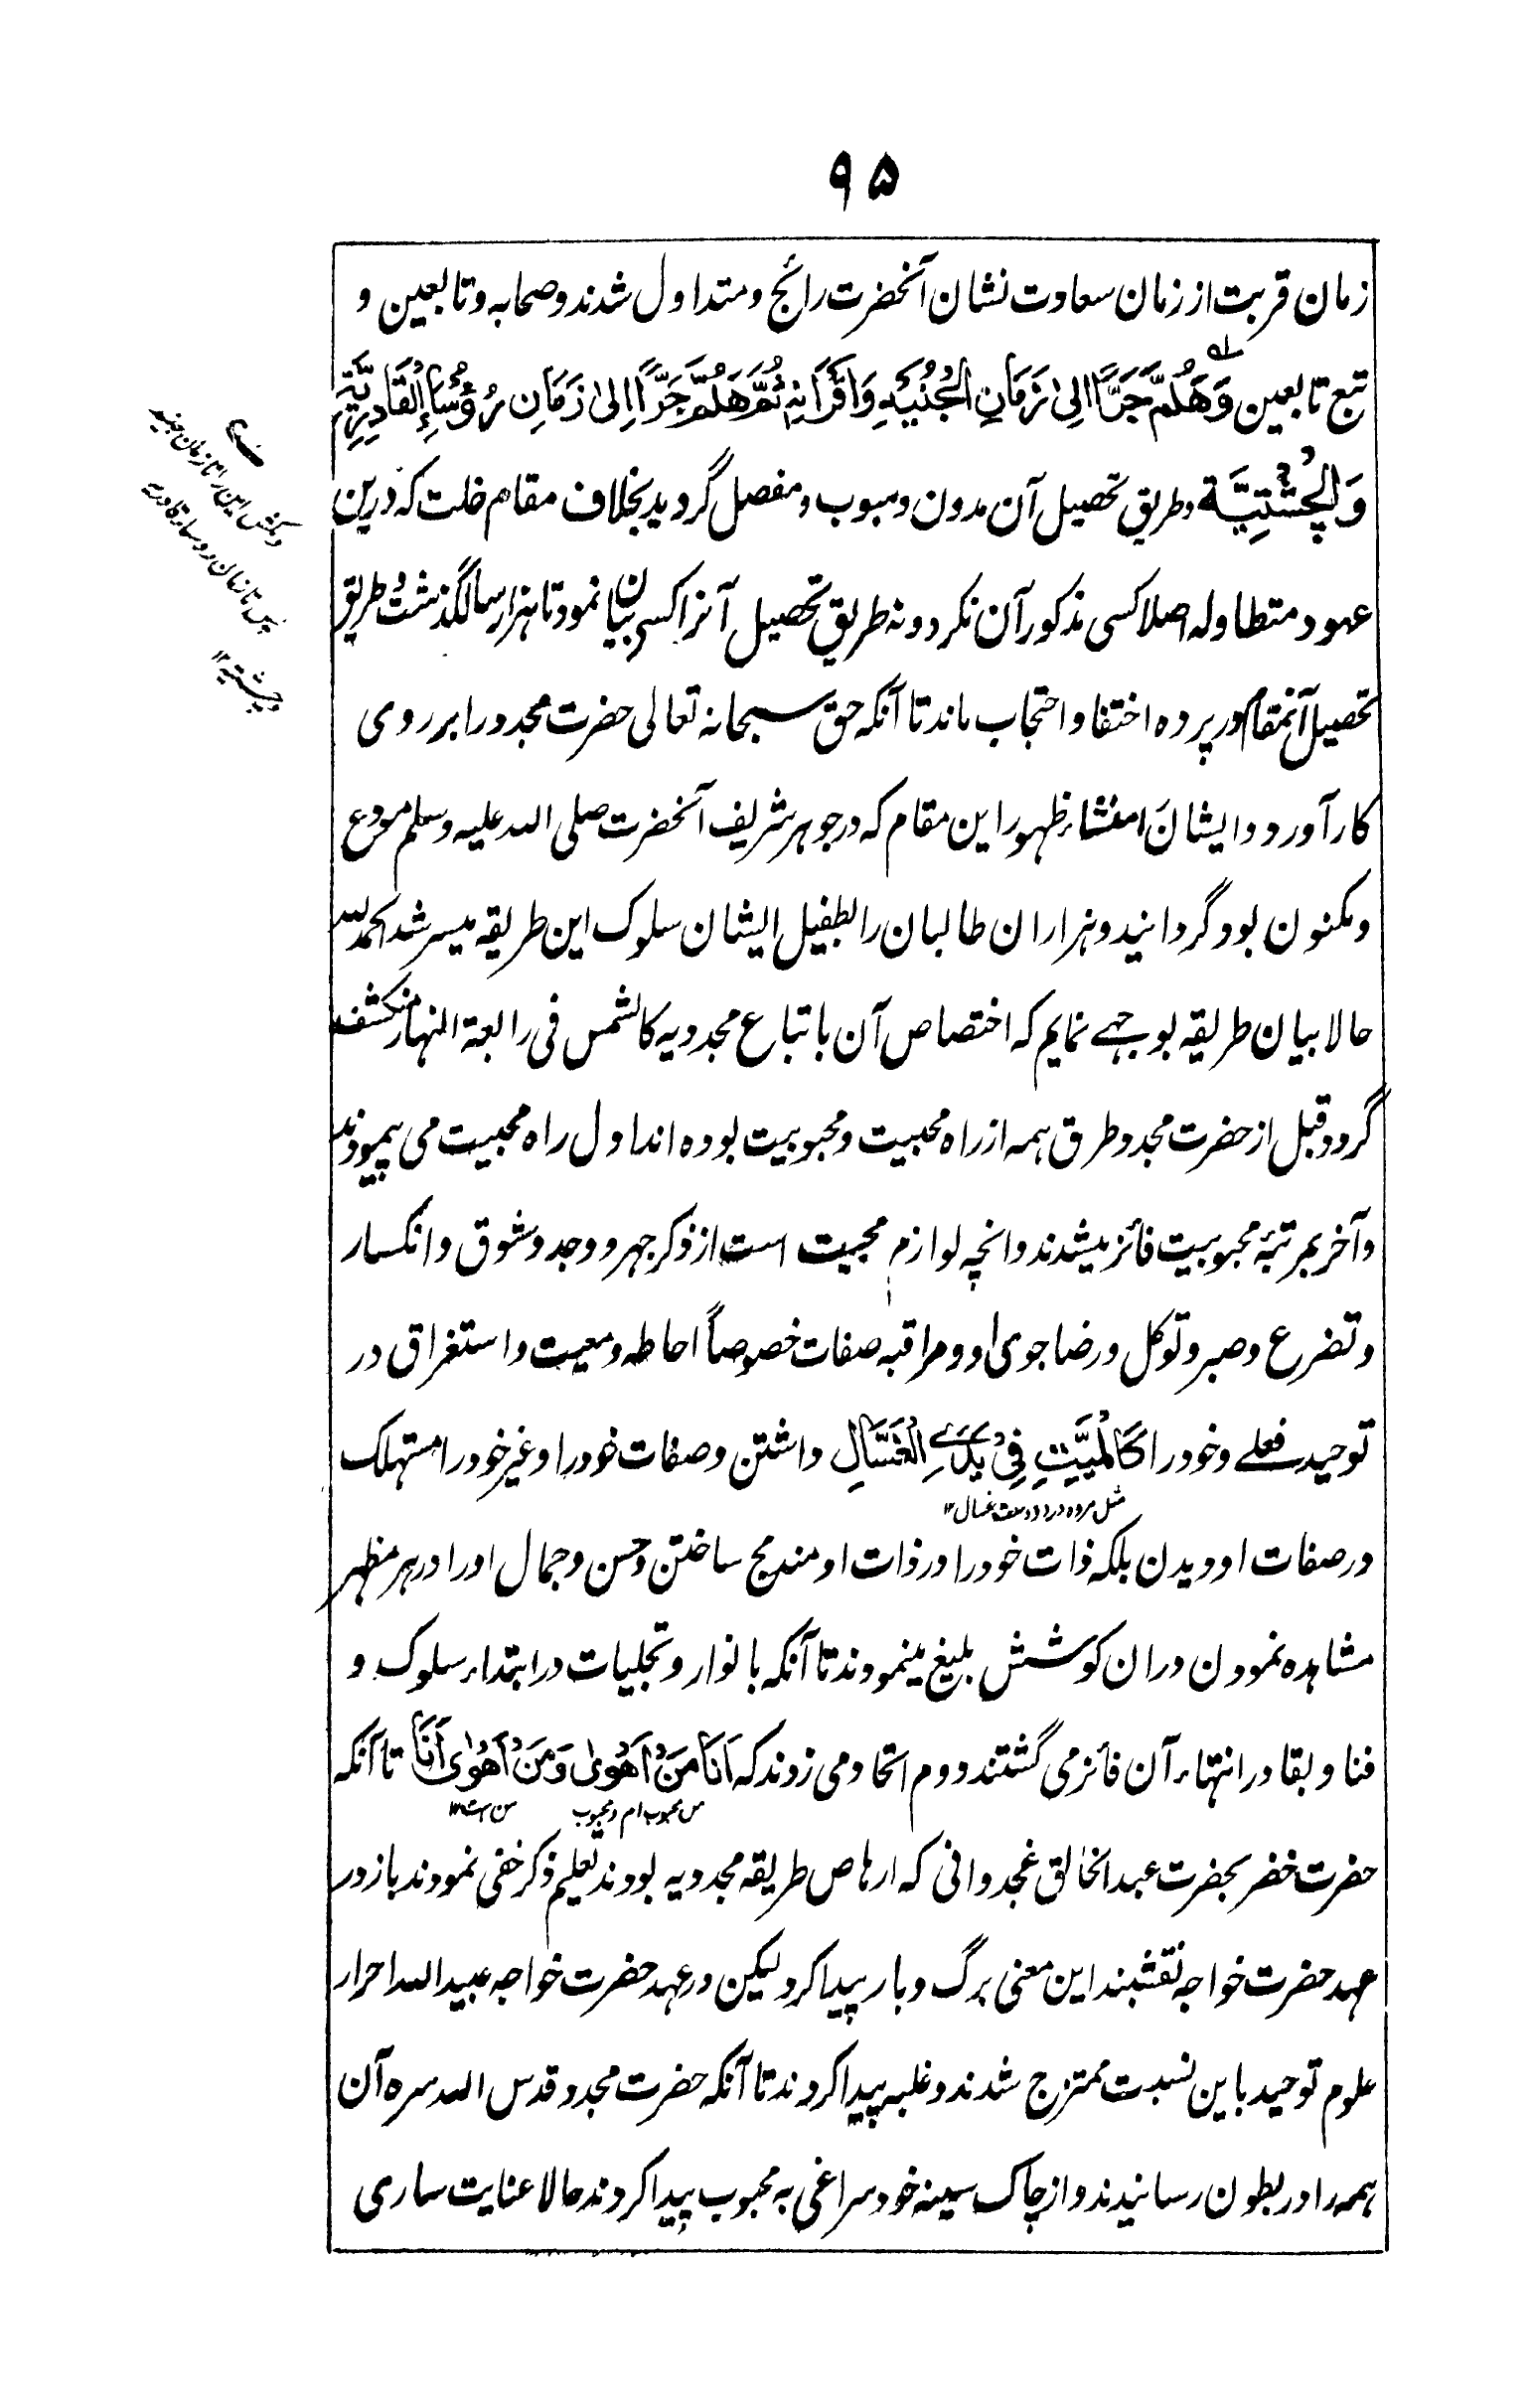 ۹۵
زمان قربت از زمان سعادت نشان آنحضرت رائج و متداول شدند و صحابه و تابعین و
تبع تابعین وَهَلُمَّ جَرًّا اِلیٰ زَمَانِ الْجُنَيْدِ وَاَقْرَانِهٖ ثُمَّ هَلُمَّ جَرًّا اِلیٰ زَمَانِ رُؤَسَاءِ الْقَادِرِيَّةِ
وَالْچِشْتِيَّة و طریق تحصیل آن مدون و مبوب و مفصل گردید بخلاف مقام خلت که درین
عهود متطاوله اصلا کسی مذکور آن نکرد و نه طریق تحصیل آنرا کسی بیان نمود تا هزار سال گذشت طریق
تحصیل آنمقام در پرده اختفا و احتجاب ماند تا آنکه حق سبحانه تعالی حضرت مجدد را بر روی
کار آورد و ایشانرا منشاء ظهور این مقام که در جوهر شریف آنحضرت صلی الله علیه وسلم مودع
و مکنون بود گردانید و هزاران طالبان را بطفیل ایشان سلوک این طریقه میسر شد الحمدلله
حالا بیان طریقه بوجهے نمایم که اختصاص آن باتباع مجددیه کالشمس فی رابعة النهار منکشف
گردد قبل از حضرت مجدد طرق همه از راه محبیت و محبوبیت بوده اند اول راه محبیت می پیمودند
و آخر بمرتبۀ محبوبیت فائز میشدند و انچه لوازم محبیت است از ذکر جهر و وجد و شوق و انکسار
و تضرع و صبر و توکل و رضا جوی او و مراقبه صفات خصوصاً احاطه و معیت و استغراق در
توحید فعلے و خود را کَالْمَيِّتِ فِیْ يَدَیِ الْغَسَّالِ داشتن و صفات خود را و غیر خود را مستهلک
مثل مرده در دو دست غسال ۱۲
در صفات او دیدن بلکه ذات خود را در ذات او مندمج ساختن و حسن و جمال او را در هر مظهر
مشاهده نمودن دران کوشش بلیغ مینمودند تا آنکه بانوار و تجلیات در ابتداء سلوک و
فنا و بقا در انتهاء آن فائز می گشتند و دم اتحاد می زدند که اَنَا مَنْ اَهْوٰی وَمَنْ اَهْوٰی اَنَا تا آنکه
من محبوب ام و محبوب من است ۱۲
حضرت خضر بحضرت عبدالخالق غجدوانی که ارهاص طریقه مجددیه بودند تعلیم ذکر خفی نمودند باز در
عهد حضرت خواجه نقشبند این معنی برگ و بار پیدا کرد لیکن در عهد حضرت خواجه عبید الله احرار
علوم توحید باین نسبت ممتزج شدند و غلبه پیدا کردند تا آنکه حضرت مجدد قدس الله سره آن
همه را در بطون رسانیدند و از چاک سینه خود سراغی به محبوب پیدا کردند حالا عنایت ساری
و بکش این را تا زمان جنید
پس تا زمان روساء قادریه
و چشتیه ۱۲